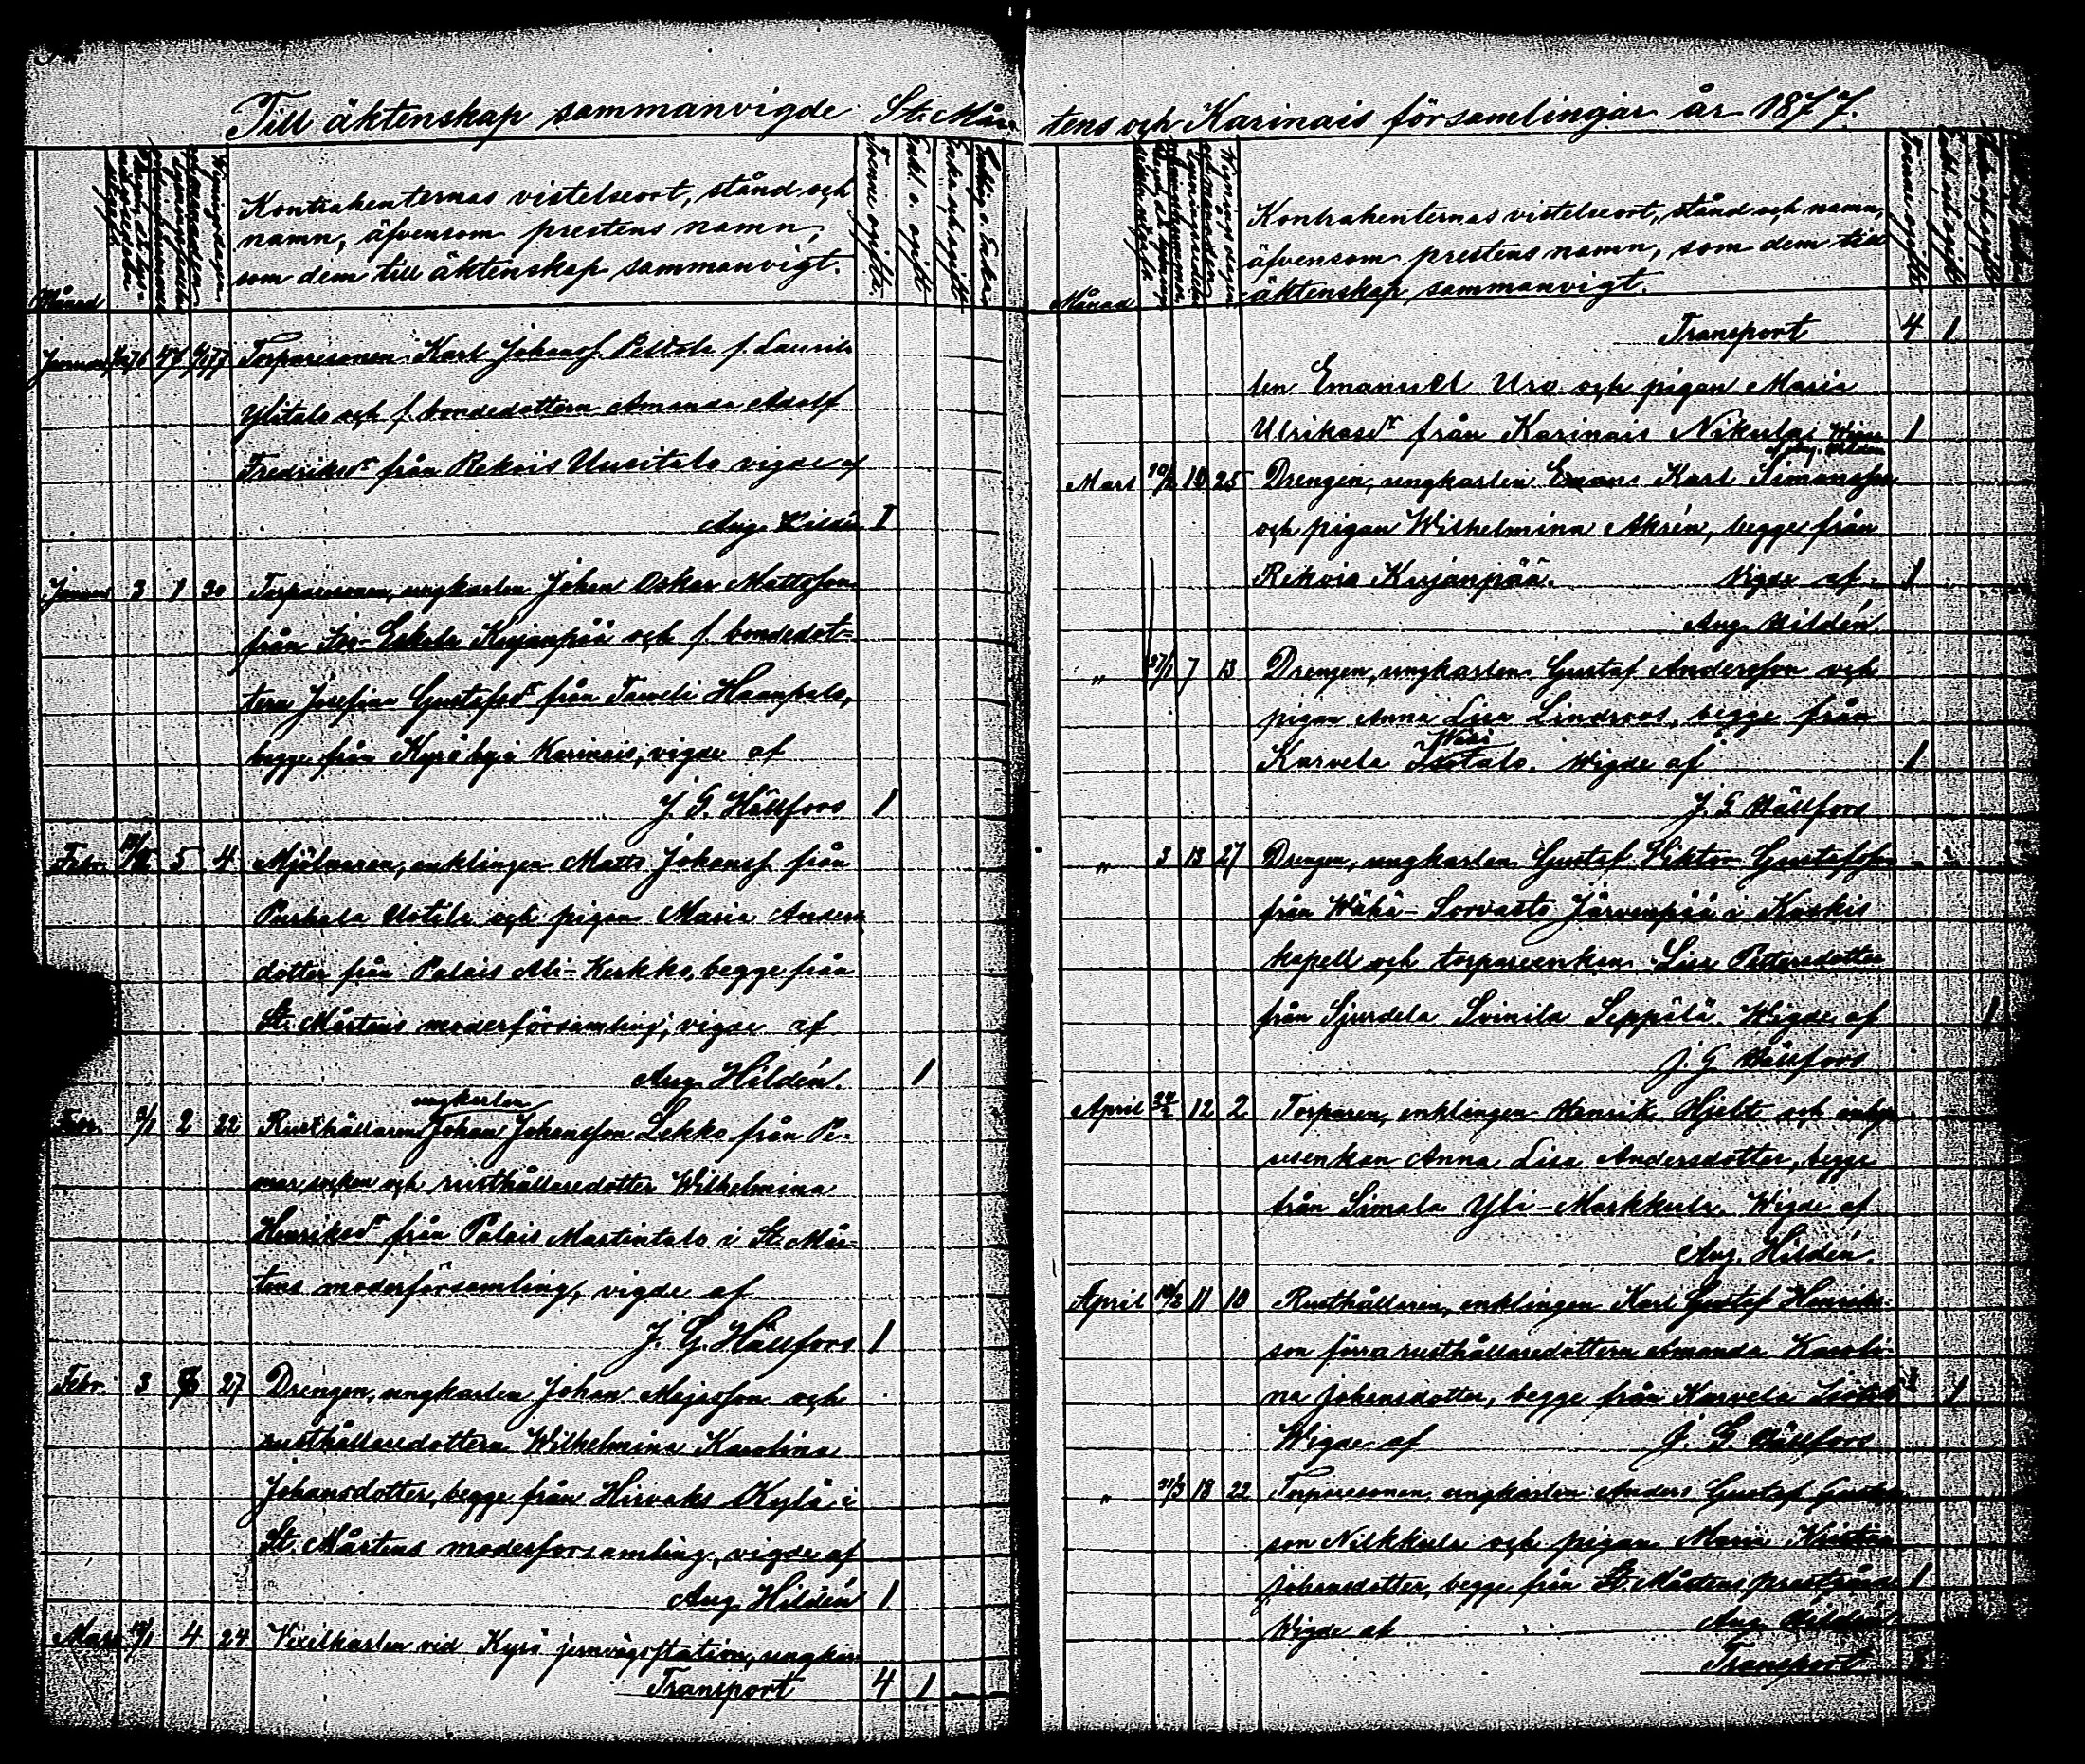 Till äktenskap sammanvigde St. Mår-
Månad
Kontrahenternas vistelseort, stånd och
namn, äfvensom prestens namn,
som dem till äktenskap sammanvigt.
Tvenne ogifta.
Enkl. o. ogift
Enka och ogift
Januari Torparesonen Karl Johansf. f. Laurila
Ylitalo och f. bondedottern Amanda Adolf
Fredriksdr från Rekois Uusitalo vigde af
Aug. Hildén 1
Januari 3 1 30 Torparesonen, ungkarlen Johan Oskar Mattsson
från Kujanpää och f. bondedot-
tern Josefina Gustafsdr från Taweli Haanpalo,
begge från Kyrö by i Karinais, vigde af
J. G. Hällfors 1
Febr. 5 4 Mjölnaren, enklingen Matts Johansf. från
Uotila och pigan Maria Anders
dotter från Palais Ali-Kerkko, begge från
St. Mårtens moderförsamling, vigde af
Aug. Hildén. 1
ungkarlen
Febr. 2/1 2 22 Rusthållaren Johan Johansson Lekko från Pe-
mar socken och rusthållaredotter Wilhelmina
Henriksdr från Palais Martintalo i St. Mår-
tens moderförsamling, vigde af
J. G. Hällfors 1
Febr. 3 27 Drengen, ungkarlen Johan Majasson och
rusthållaredottern Wilhelmina Karolina
Johansdotter, begge från Hirvaks Kylä i
St. Mårtens moderförsamling, vigde af
Aug. Hildén 1
Mars 4 24 Vexelkarlen vid Kyrö jernvägsstation, ungkar-
Transport 4 1
tens och Karinais församlingar år 1877.
Månad
Kontrahenternas vistelseort, stånd och namn,
äfvensom prestens namn, som dem till
äktenskap sammanvigt.
Tvenne ogifta
Transport 4 1
len Emanuel Uro och pigan Maria
Ulriksdr från Karinais Nikula. Wigde 1
af Aug. Hildén
Mars 10 25 Drengen, ungkarlen Karl Simonsson
och pigan Wilhelmina Ahrén, begge från
Rekois Kujanpää. Vigde af 1
Aug. Hildén.
" 27/1 7 13 Drengen, ungkarlen Gustaf Andersson och
pigan Anna Lisa Lindroos, begge från
Karvela Isotalo. Wigde af 1
J. G. Hällfors
" 3 13 27 Drengen, ungkarlen Gustaf Viktor Gustafsson
från Wähä-Sorvasto Järvenpää i Koskis
kapell och torpareenkan Lisa Pettersdotter
från Sjurdela Svinila Seppälä. Wigde af 1
J. G. Hällfors
April 24/2 12 2 Torparen, enklingen Henrik Hjelt och
enkan Anna Lisa Andersdotter, begge
från Simala Yli-Markkula. Wigde af
Aug. Hildén.
April 11 10 Rusthållaren, enklingen Karl Gustaf Henriks-
son förra rusthållaredottern Amanda Karoli-
na Johansdotter, begge från Karvela Isotalo 1
Wigde af J. G. Hällfors
" 18 22 Torparesonen, ungkarlen Anders Gustaf
son Nikkula och pigan Maria Kristina
Johansdotter, begge från St. Mårtens prestgård 1
Wigde af Aug. Hildén
Transport